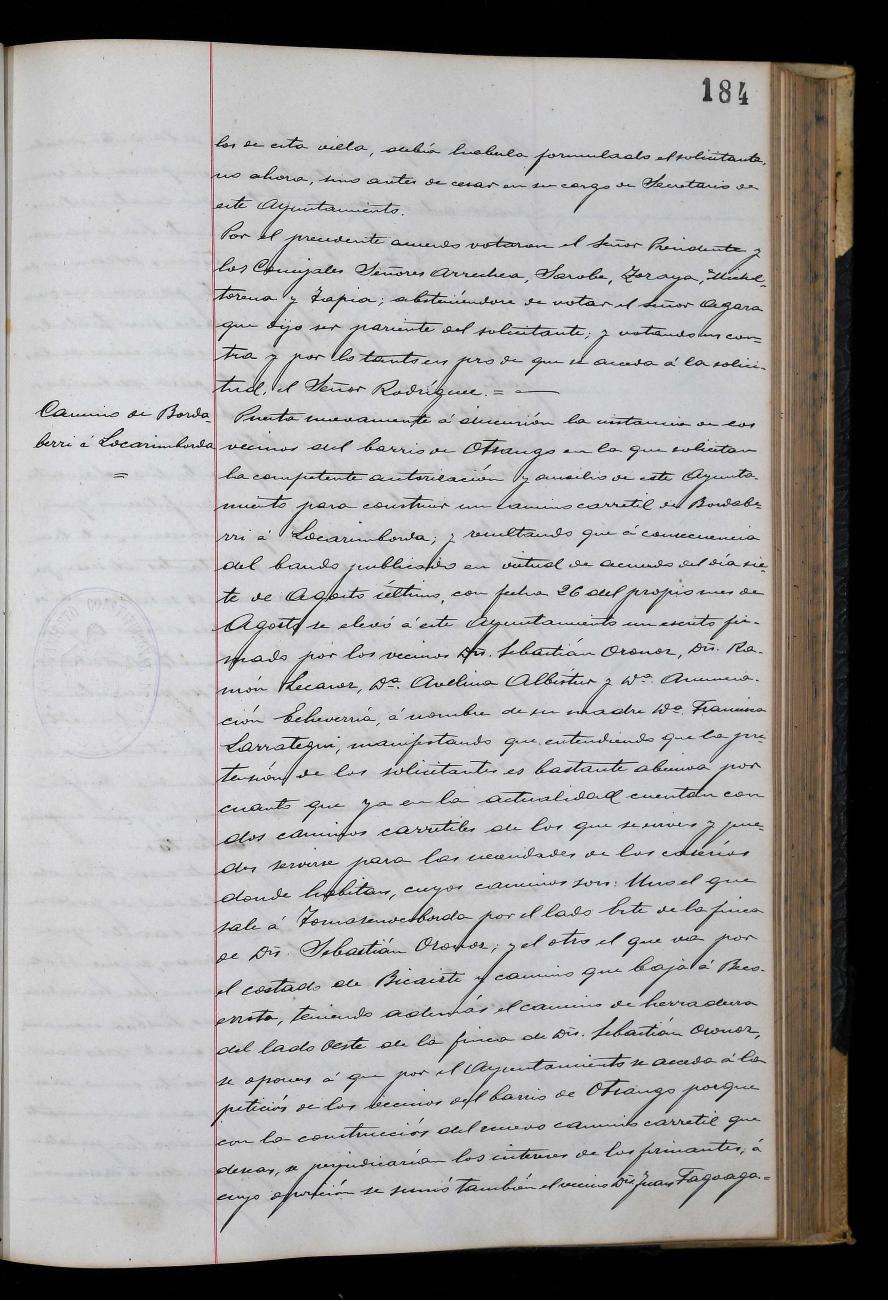 184
los de esta villa, debía haberla formulado el solicitante,
no ahora, sino antes de cesar en su cargo de Secretario de
este Ayuntamiento.
Por el precedente acuerdo votaron el Señor Presidente y
los Concejales Señores Arrechea, Sarobe, Zoraya, Michel-
torena y Tapia; absteniéndose de votar el señor Agara
que dijo ser pariente del solicitante; y votando en con-
tra y por lo tanto en pro de que se acceda á la solici-
tud, el Señor Rodríguez. = —
Camino de Borda-
berri á Locarimborda
=
Puesta nuevamente á discusión la instancia de los
vecinos del barrio de Otsango en la que solicitan
la competente autorización y auxilio de este Ayunta-
miento para construir un camino carretil de Bordabe-
rri á Locarimborda; y resultando que á consecuencia
del bando publicado en virtud de acuerdo del día sie-
te de Agosto último, con fecha 26 del propio mes de
Agosto se elevó á este Ayuntamiento un escrito fir-
mado por los vecinos Dn. Sebastián Oronoz, Dn. Ra-
món Lecaroz, Dª. Avelina Albistur y Dª. Anuncia-
ción Echeverría, á nombre de su madre Dª. Francisca
Larrategui, manifestando que entendiendo que la pre-
tensión de los solicitantes es bastante abusiva por
cuanto que ya en la actualidad cuentan con
dos caminos carretiles de los que se sirven y pue-
den servirse para las necesidades de los caseríos
donde habitan, cuyos caminos son: Uno el que
sale á Tomasenecoborda por el lado Este de la finca
de Dn. Sebastián Oronoz; y el otro el que va por
el costado de Bicairte y camino que baja á Beco-
errota, teniendo además el camino de herradura
del lado Oeste de la finca de Dn. Sebastián Oronoz,
se oponen á que por el Ayuntamiento se acceda á la
petición de los vecinos del barrio de Otsango porque
con la construcción del nuevo camino carretil que
desean, se perjudicarían los intereses de los firmantes, á
cuya oposición se sumó también el vecino Dn. Juan Fagoaga.=